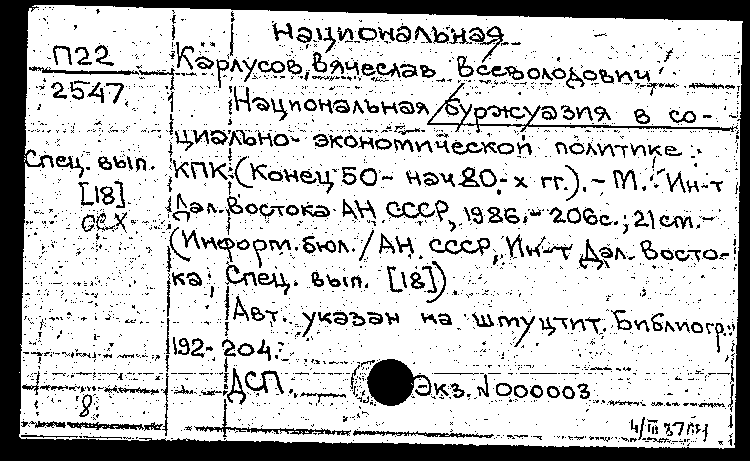 Национальная
П22
2547
Карлусов, Вячеслав Всеволодович
Национальная буржуазия в со-
циально-экономической политике
Спец. вып.
[18]
КПК: (Конец 50-нач. 80-х гг.). - М.: Ин-т
Дал. Востока АН СССР, 1986. - 206с.; 21 см. -
(Информ. бюл. / АН СССР, Ин-т Дал. Восто-
ка; Спец. вып. [18]).
Авт. указан на шмуцтит. Библиогр.:
192-204.
ДСП. Экз. N000003
8
4/III 87